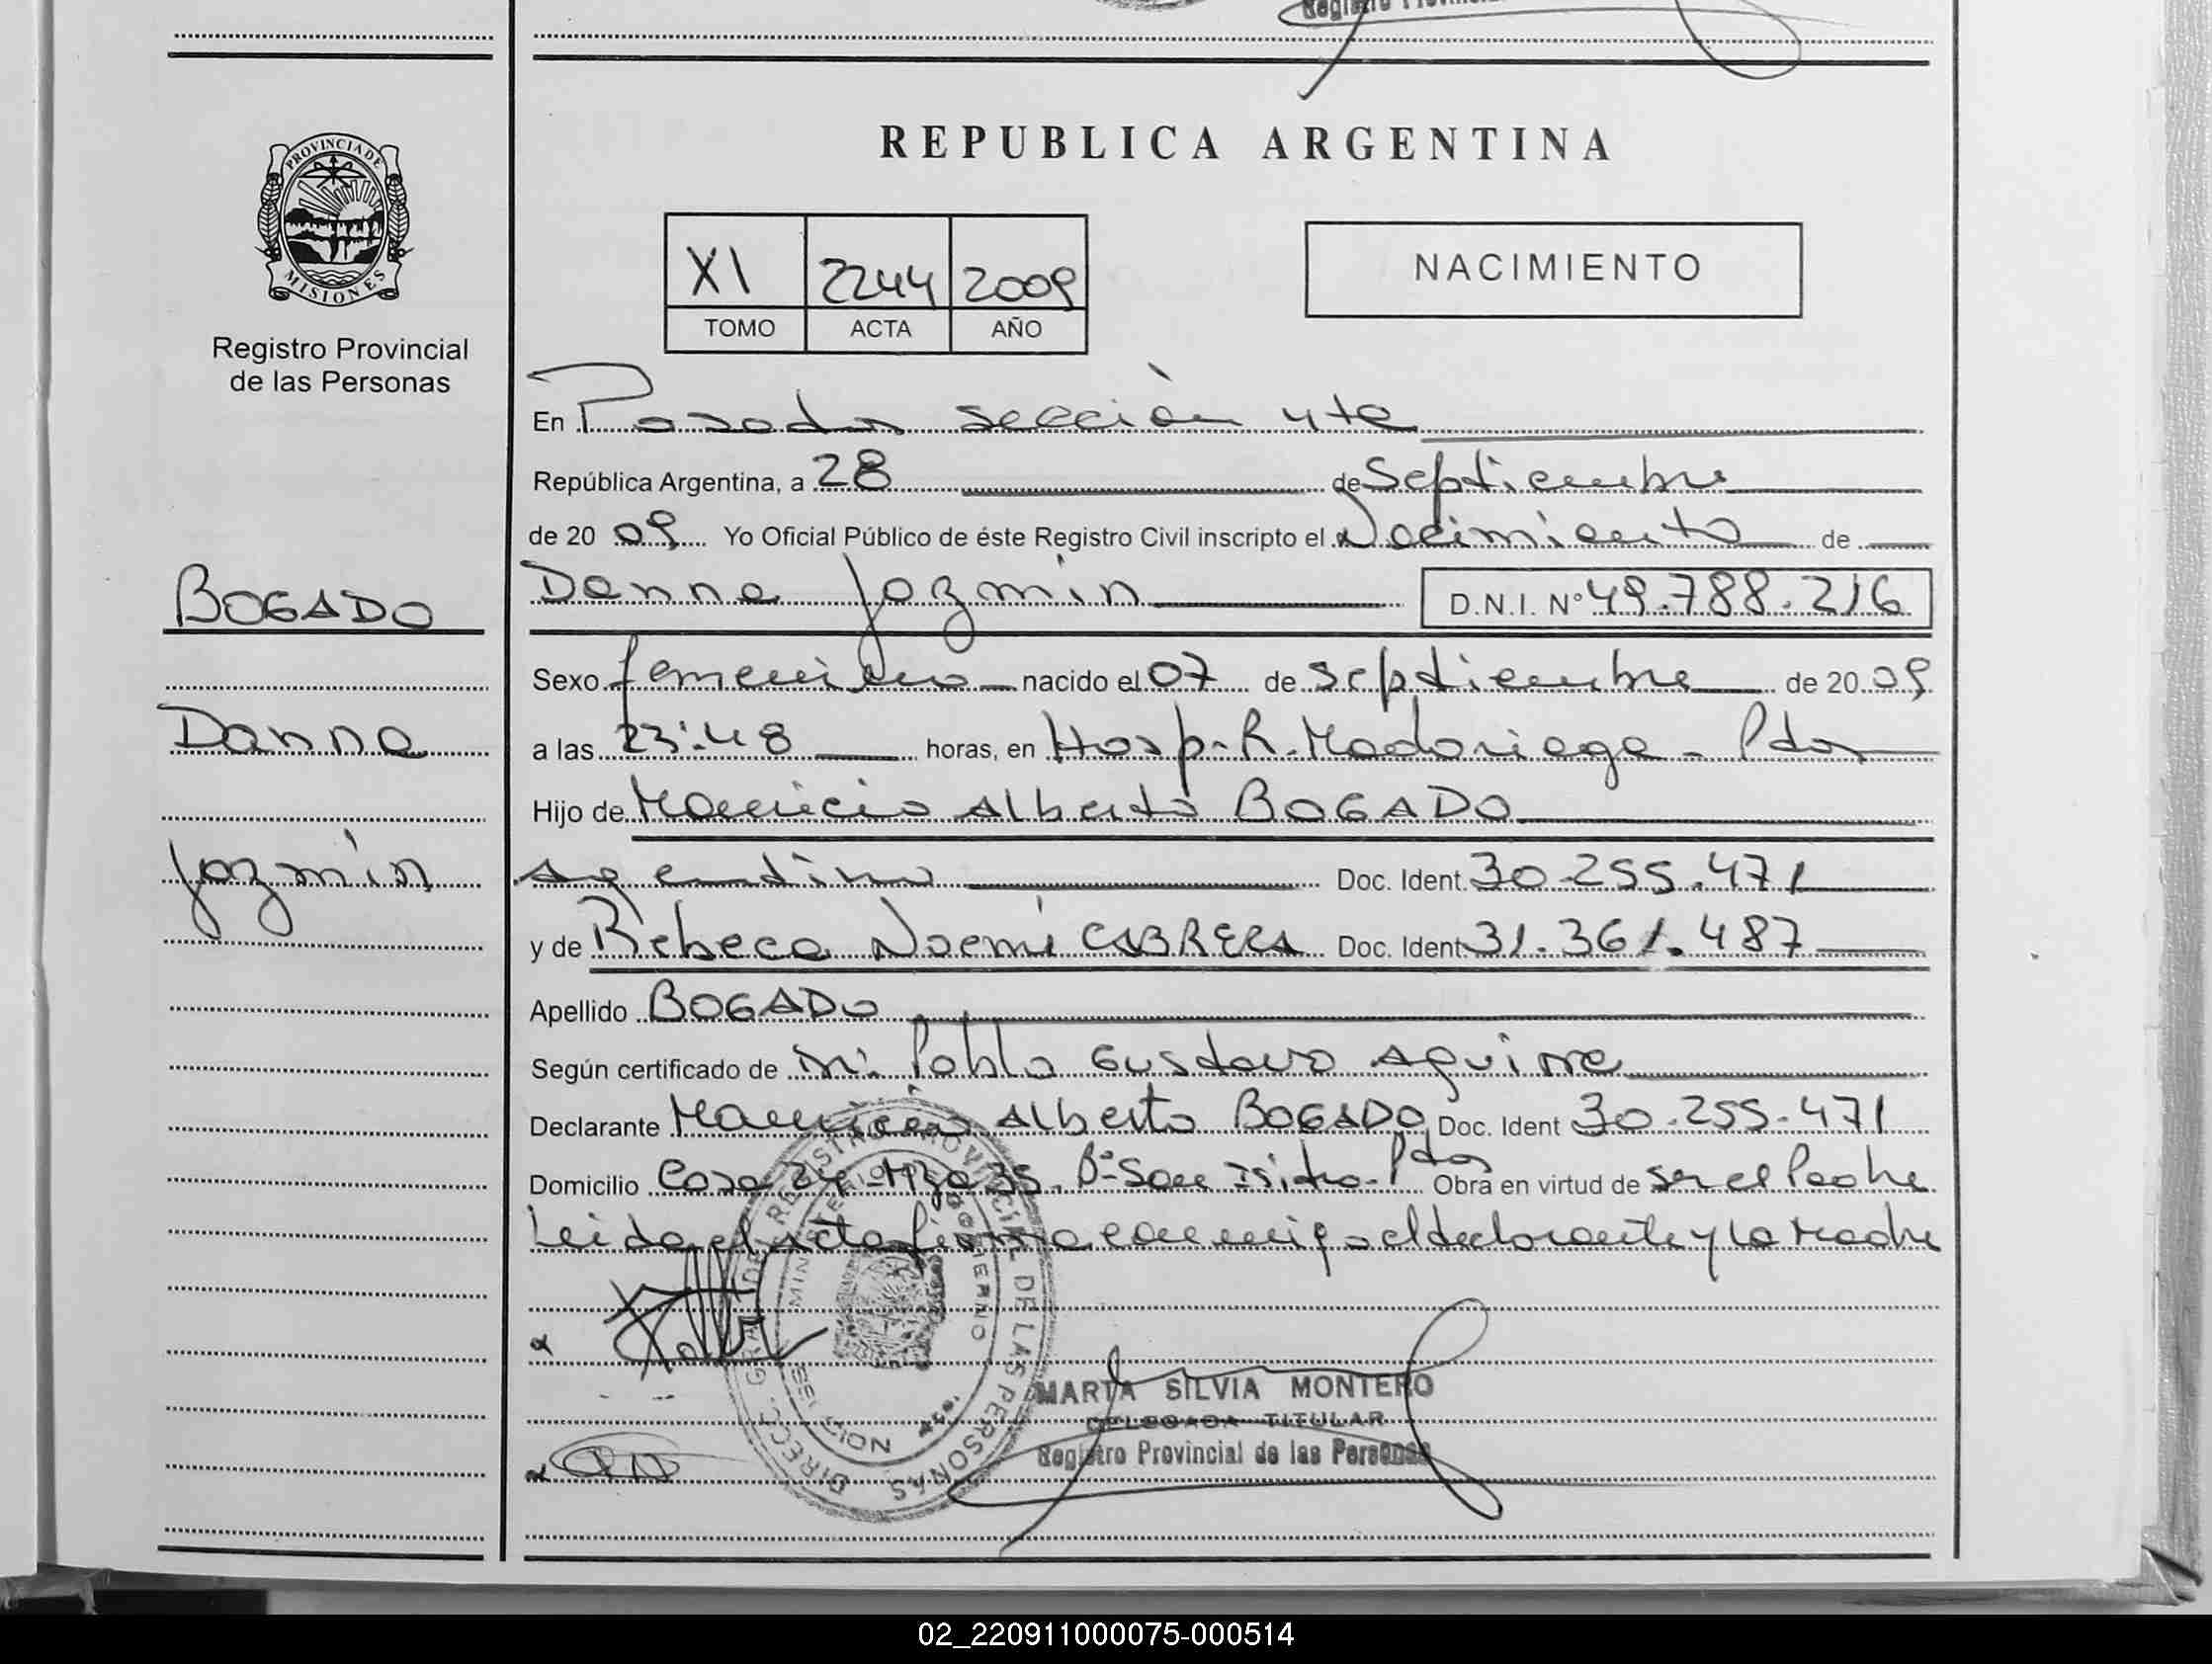 REPUBLICA ARGENTINA
PROVINCIA DE
MISIONES
Registro Provincial
de las Personas
XI 2244 2009
TOMO ACTA AÑO
NACIMIENTO
En Posadas sección 4ta
República Argentina, a 28 de Septiembre
de 20 09 Yo Oficial Público de éste Registro Civil inscripto el Nacimiento de
BOGADO
Danna
Jazmín
Danna Jazmín D.N.I. Nº 49.788.216
Sexo femenino nacido el 07 de septiembre de 20 09
a las 23:48 horas, en Hosp. R. Madariaga - Pdas
Hijo de Mauricio Alberto BOGADO
Argentino Doc. Ident. 30.255.471
y de Rebeca Noemí CABRERA Doc. Ident. 31.361.487
Apellido BOGADO
Según certificado de Pablo Gustavo Aguirre
Declarante Mauricio Alberto BOGADO Doc. Ident 30.255.471
Domicilio Casa 24 - Mza 35. Bº San Isidro - Pdas Obra en virtud de ser el Padre
Leida el acta firma conmigo el declarante y la Madre
DIRECC. GRAL. DEL REGISTRO PROVINCIAL DE LAS PERSONAS
MINISTERIO DE GOBIERNO
MARTA SILVIA MONTERO
DELEGADA TITULAR
Registro Provincial de las Personas
02_220911000075-000514